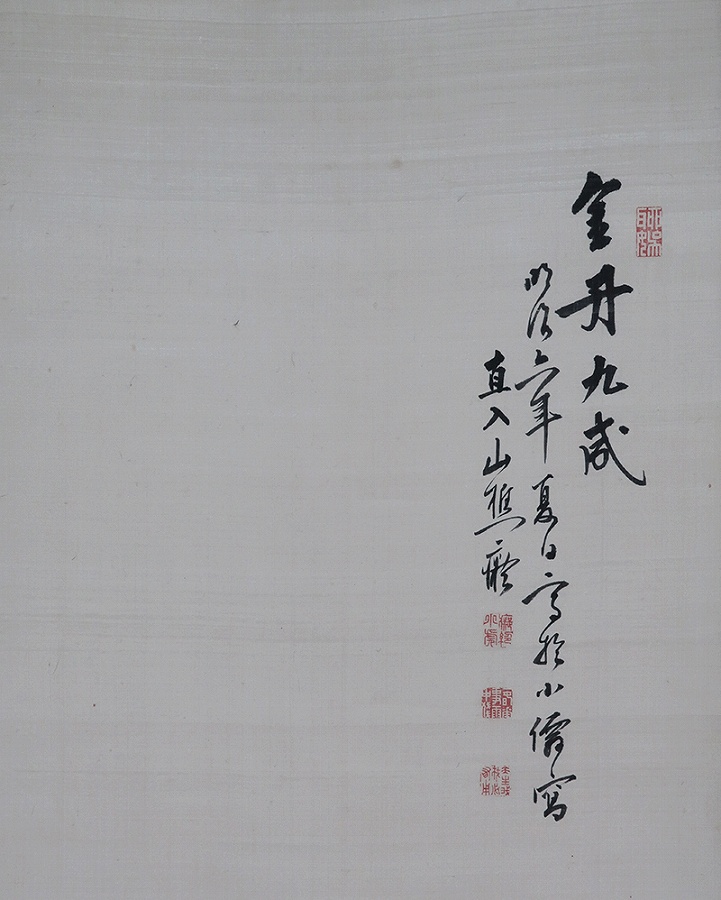 金丹九成
明治六年夏日寫於小僊窩
直入山樵癡